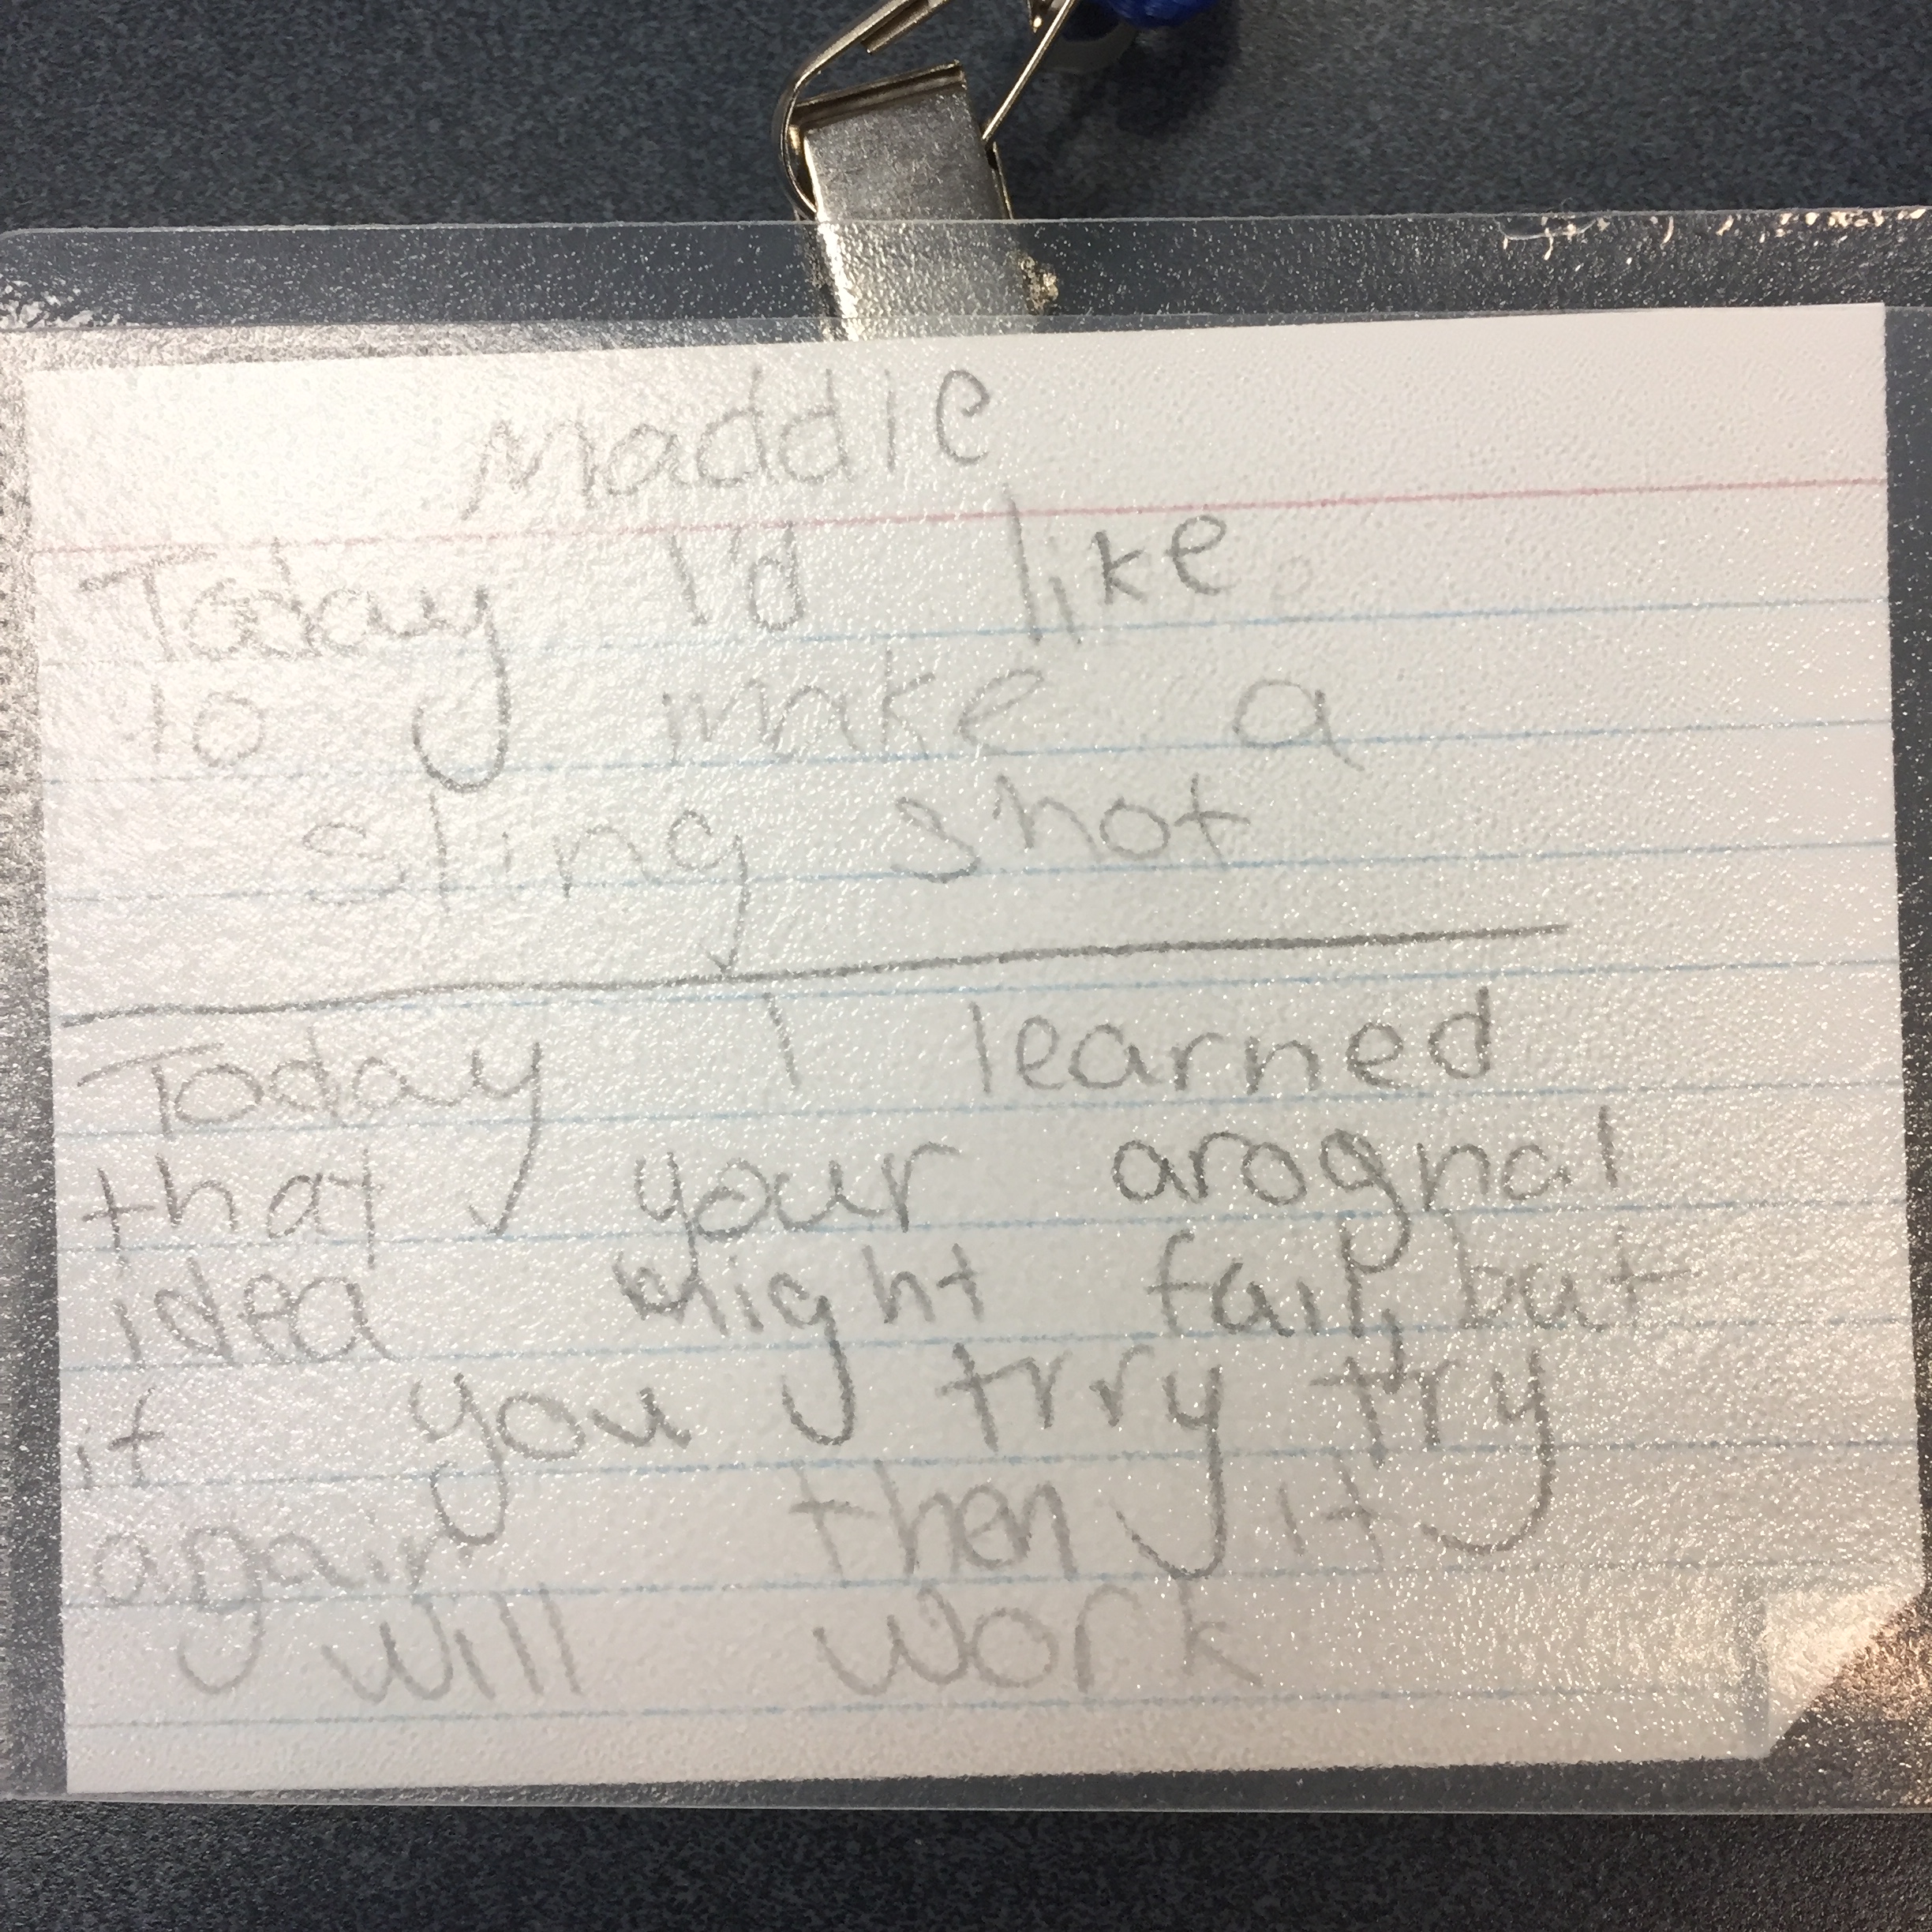 Maddie
Today I'd like
to make a
sling shot
Today I learned
that your arognal
idea might fail, but
if you trry try
again then it
will work